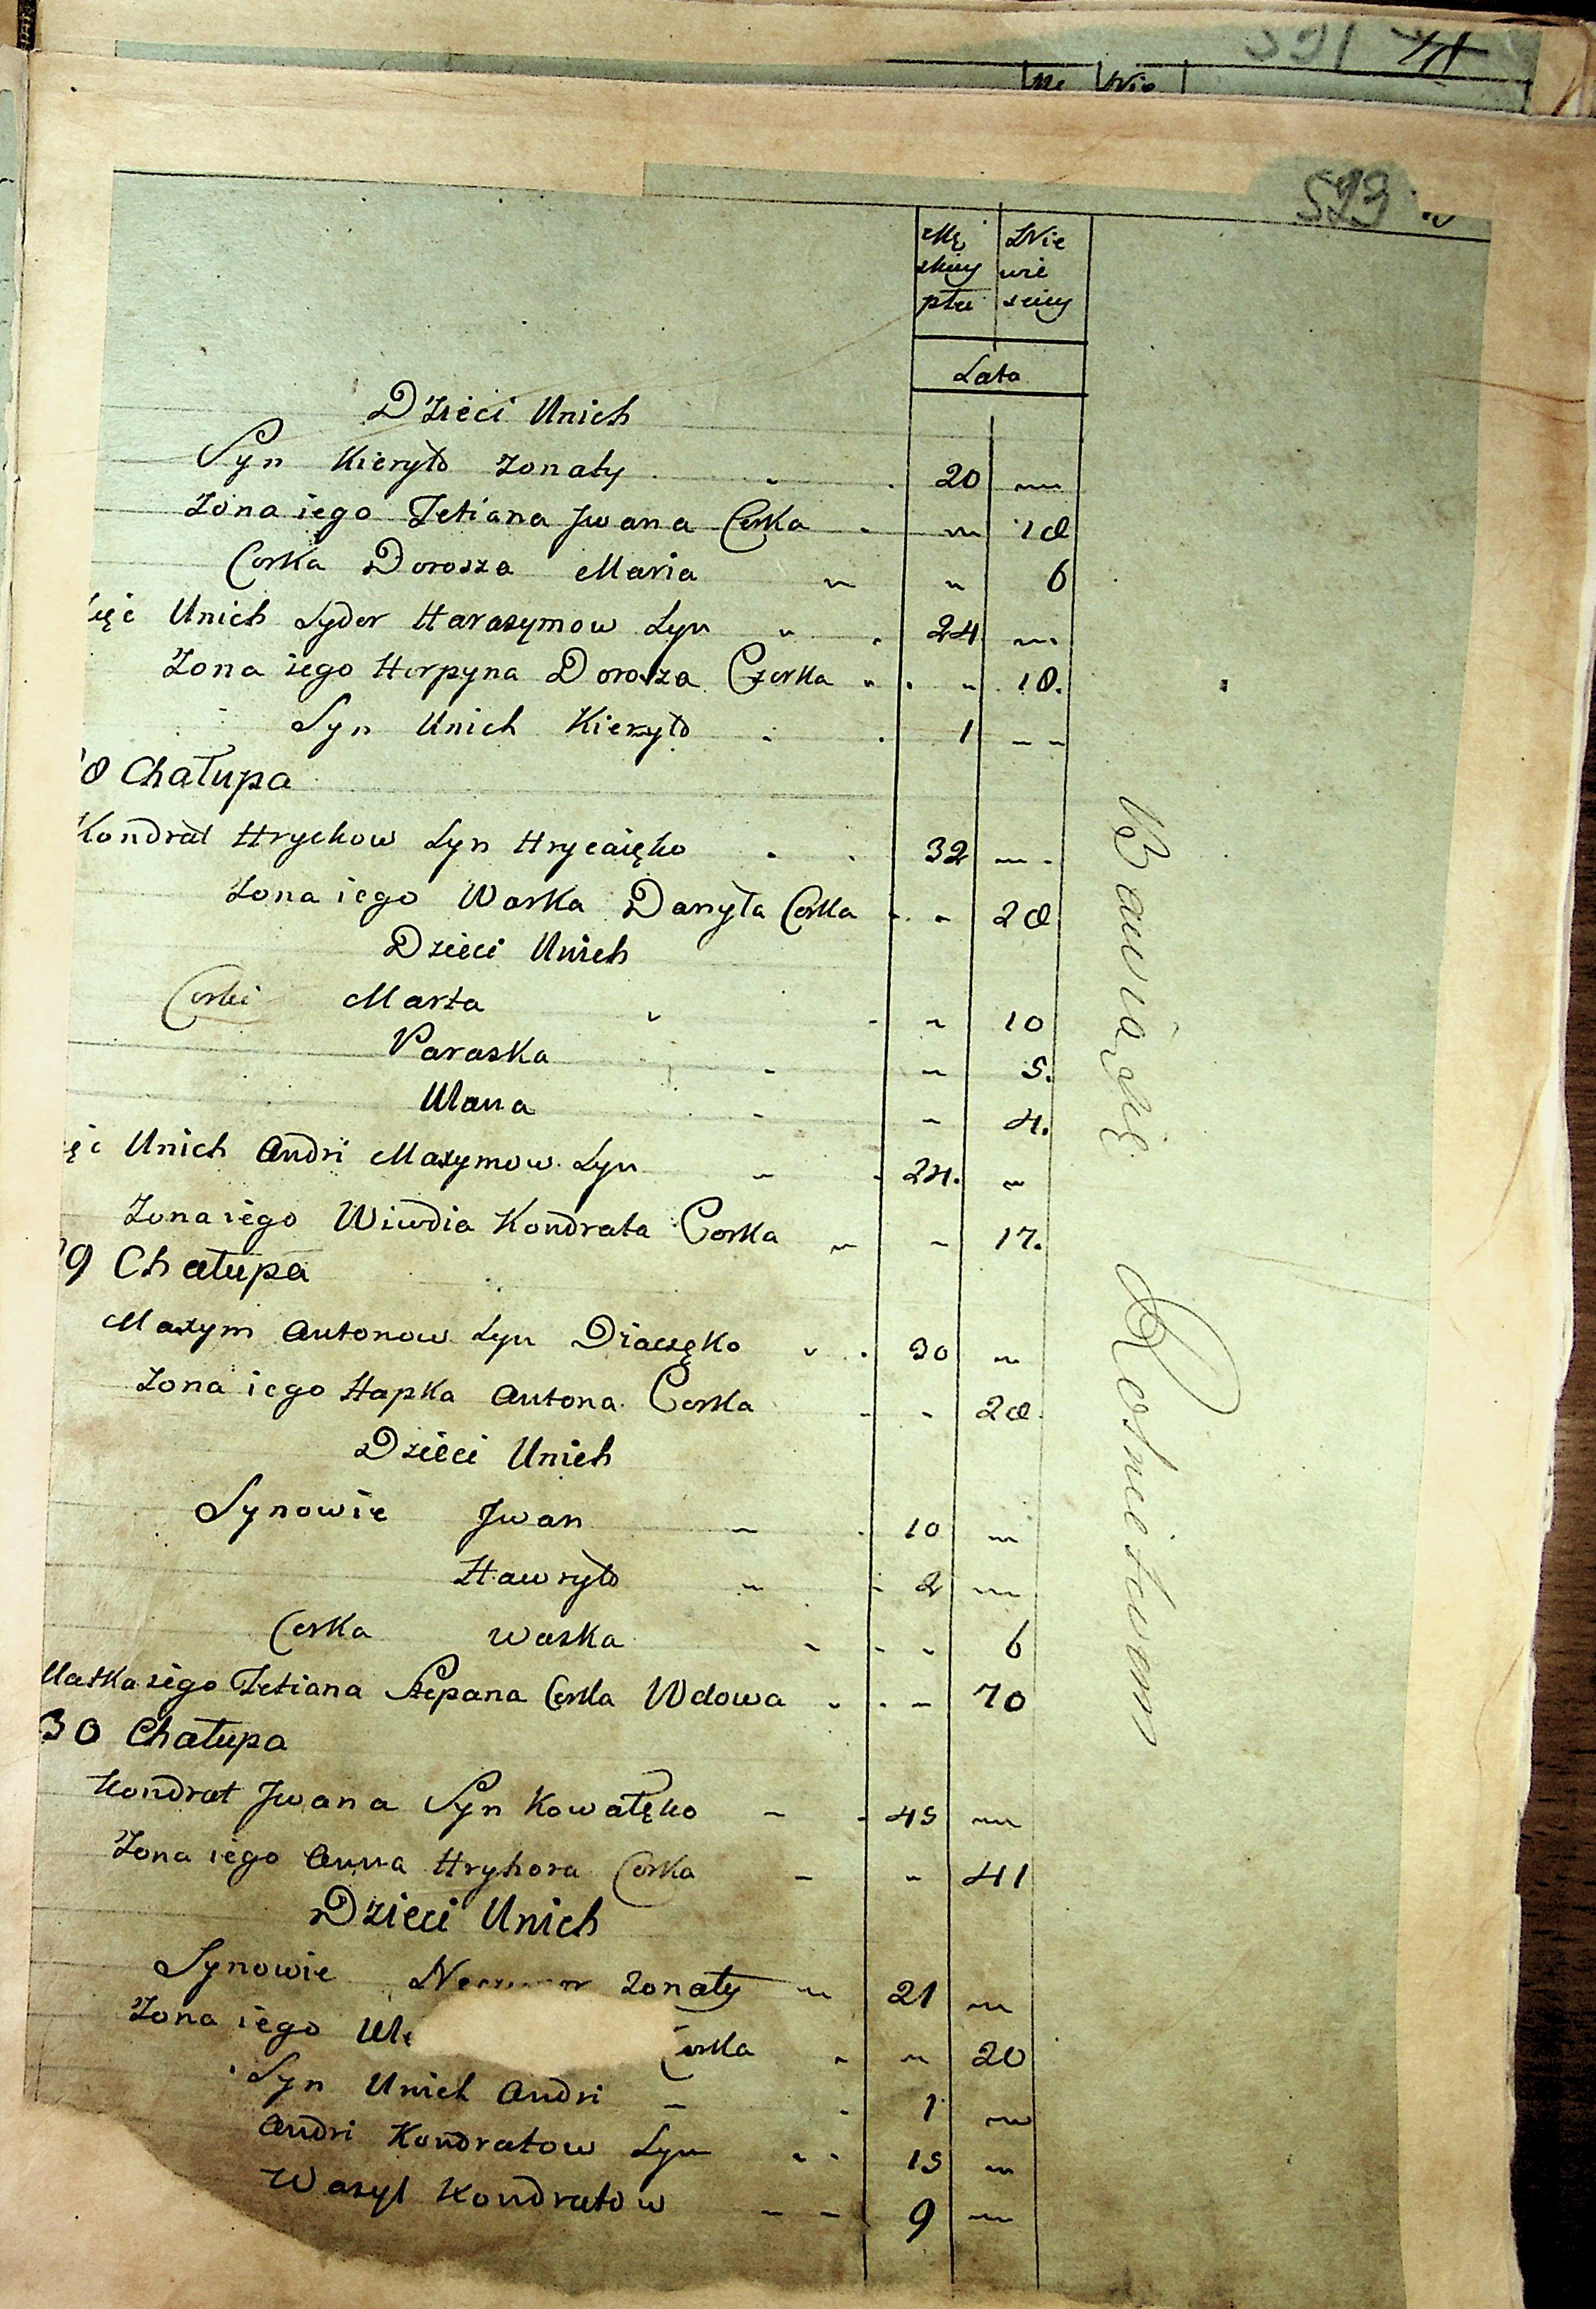 523
Mę Nie
skiey wie
płci sciey
Lata
Dzieci Unich
Syn Kieryło żonaty 20
Żona iego Tetiana Jwana Corka 18
Corka Dorosza Maria 6
Unich Syder Harasymow Syn 24
Żona iego Horpyna Dorosza Czorka 18.
Syn Unich Kieryło 1
8 Chałupa
Kondrat Hryckow Syn Hrycaięko 32
Żona iego Warka Danyła Corka 28
Dzieci Unich
Corki Marta 10
Paraska 5.
Ulana 4.
Unich Andri Maxymow Syn 24.
Żona iego Wiwdia Kondrata Corka 17.
9 Chałupa
Maxym Antonow Syn Diaczęko 30
Żona iego Hapka Antona Corka 28.
Dzieci Unich
Synowie Jwan 10
Hawryło 2
Corka Waska 6
Matka iego Tetiana Stepana Corka Wdowa 70
30 Chałupa
Kondrat Jwana Syn Kowalęko 45
Żona iego Anna Hryhora Corka 41
Dzieci Unich
Synowie żonaty 21
Żona iego Corka 20
Syn Unich Andri 1
Andri Kondratow Syn 15
Wasyl Kondratow 9